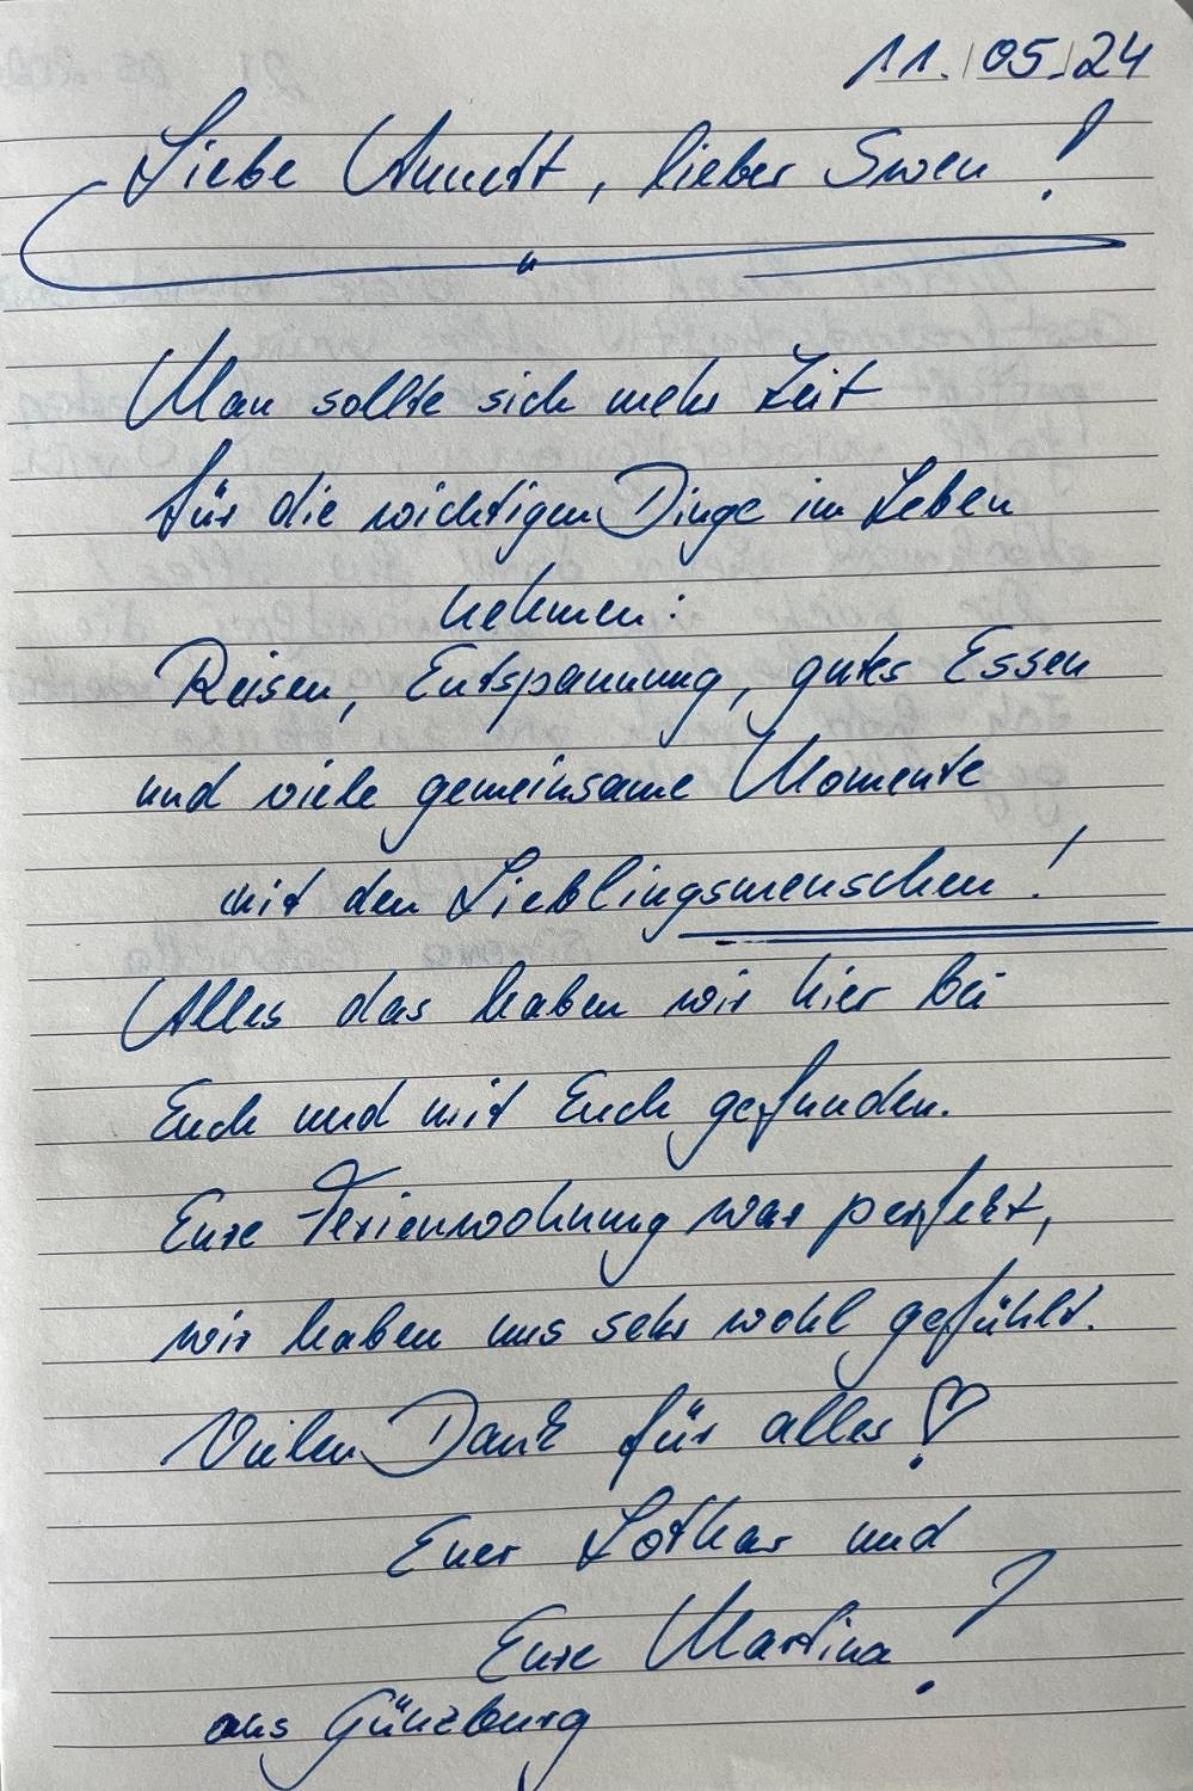 11.05.24
Liebe Annett, lieber Swen!
Man sollte sich mehr Zeit
für die wichtigen Dinge im Leben
nehmen:
Reisen, Entspannung, gutes Essen
und viele gemeinsame Momente
mit den Lieblingsmenschen!
Alles das haben wir hier bei
Euch und mit Euch gefunden.
Eure Ferienwohnung war perfekt,
wir haben uns sehr wohl gefühlt.
Vielen Dank für alles!
Euer Lothar und
Eure Martina!
aus Günzburg